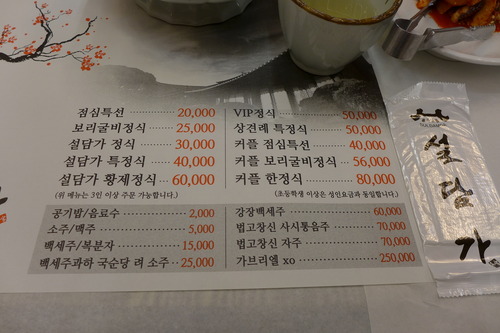 점심특선 20,000
보리굴비정식 25,000
설담가 정식 30,000
설담가 특정식 40,000
설담가 황제정식 60,000
(위 메뉴는 3인 이상 주문 가능합니다.)
VIP정식 50,000
상견례 특정식 50,000
커플 점심특선 40,000
커플 보리굴비정식 56,000
커플 한정식 80,000
(초등학생 이상은 성인요금과 동일합니다.)
공기밥/음료수 2,000
소주/맥주 5,000
백세주/복분자 15,000
백세주과하 국순당 려 소주 25,000
강장백세주 60,000
법고창신 사시통음주 70,000
법고창신 자주 70,000
가브리엘 xo 250,000
설담가